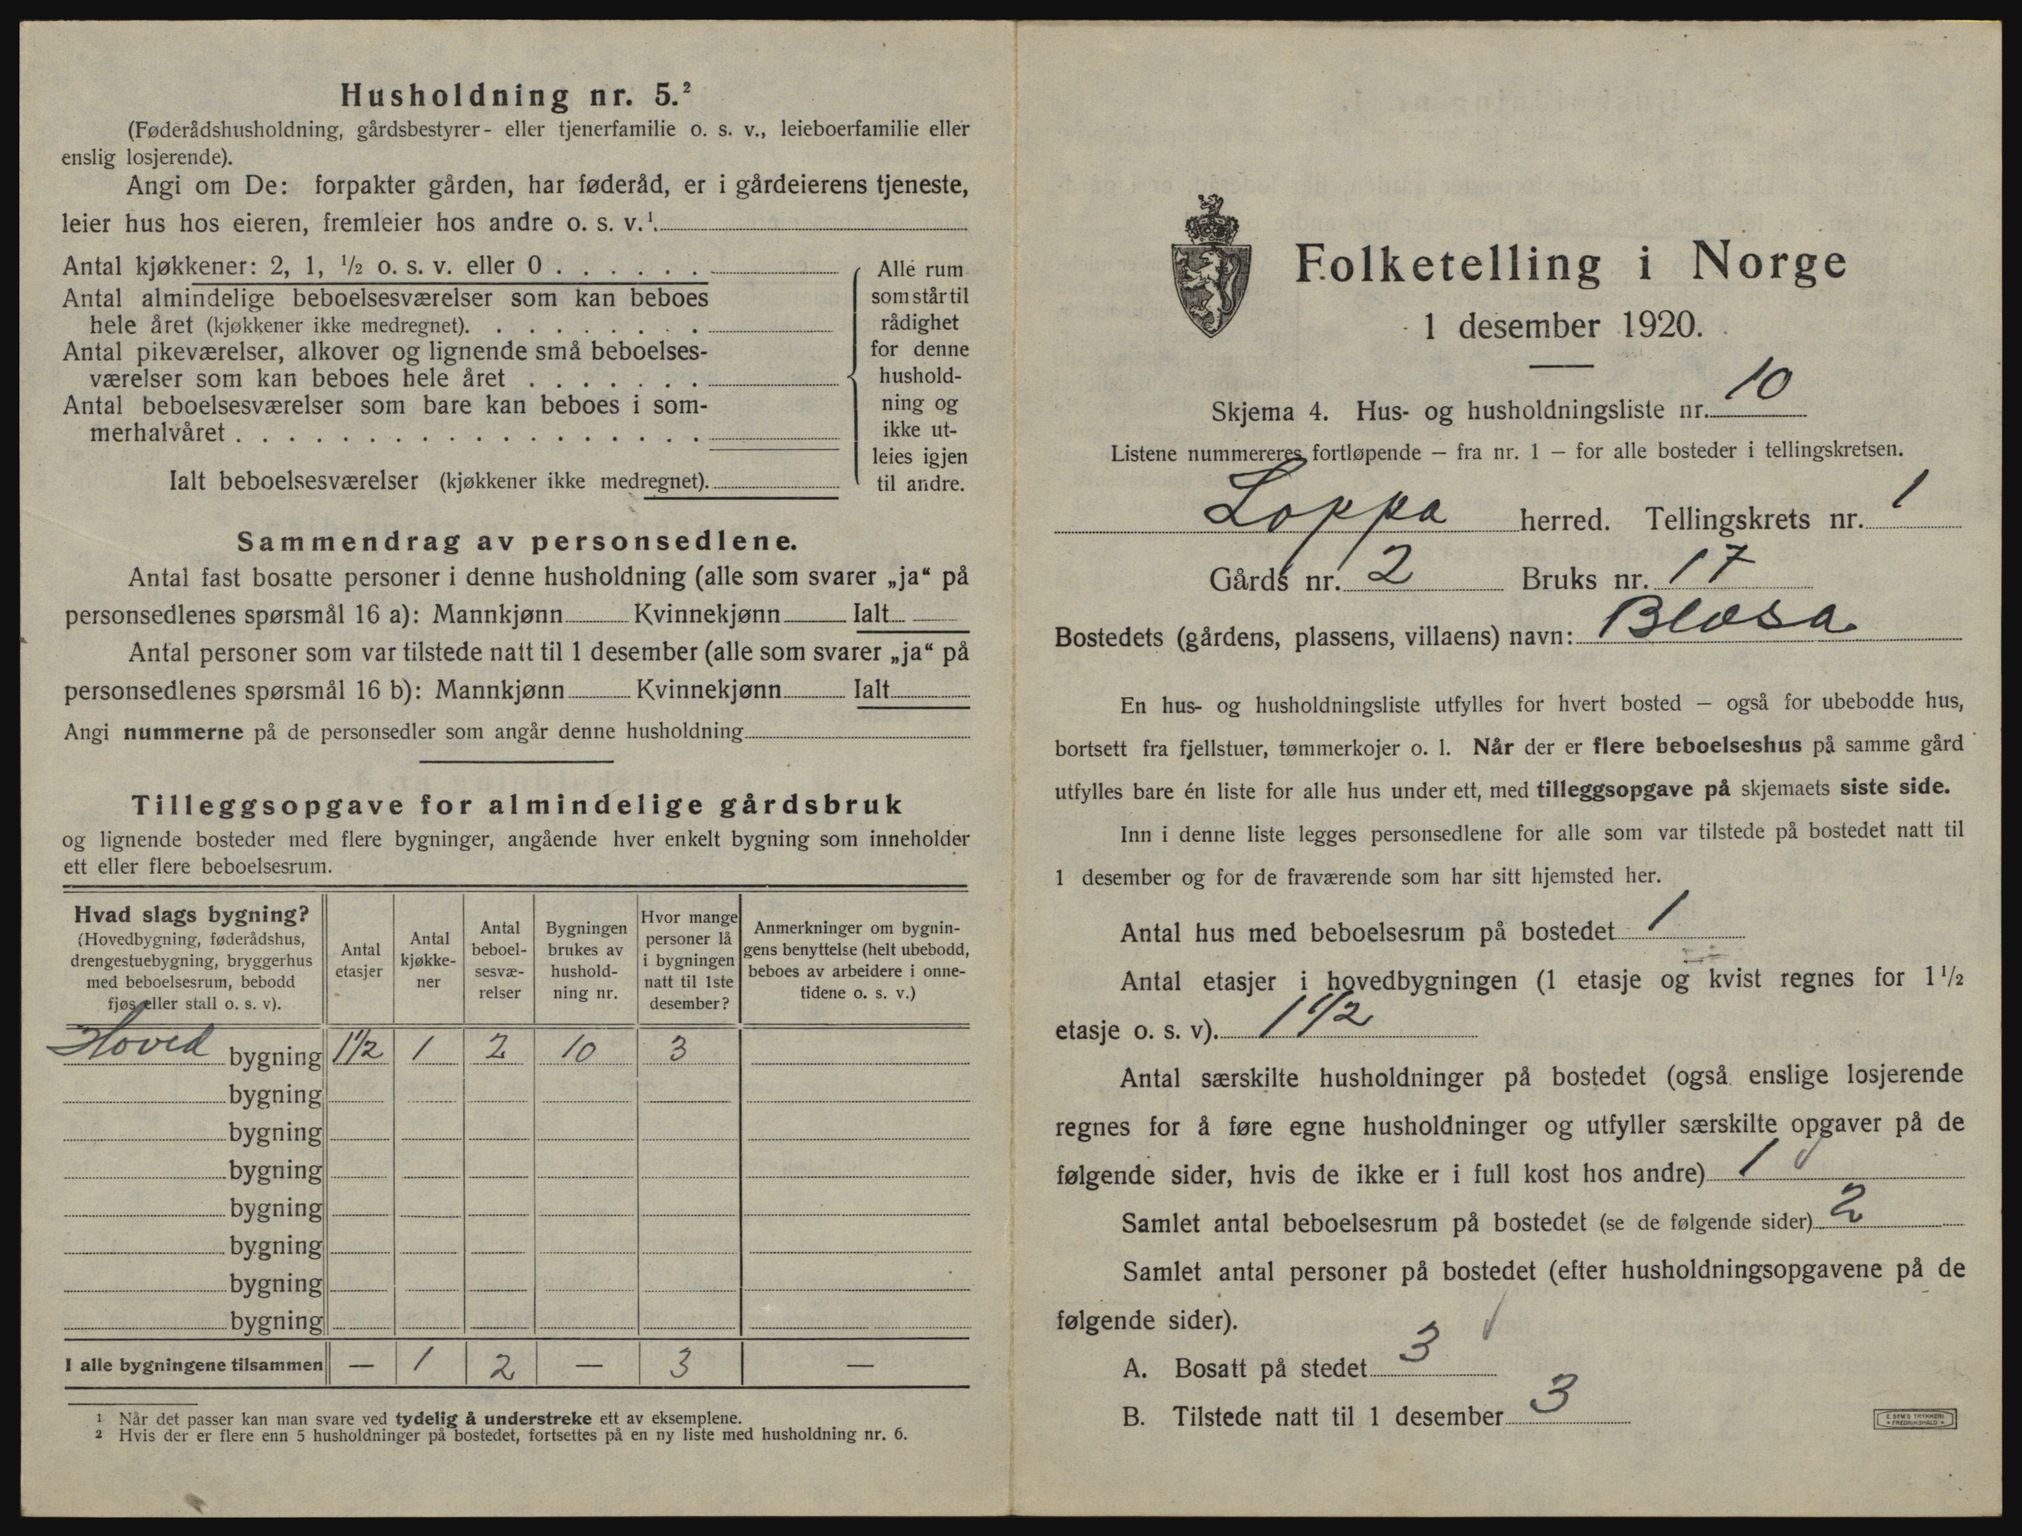 Husholdning nr. 5.²
(Føderådshusholdning, gårdsbestyrer- eller tjenerfamilie o. s. v., leieboerfamilie eller
enslig losjerende).
Angi om De: forpakter gården, har føderåd, er i gårdeierens tjeneste,
leier hus hos eieren, fremleier hos andre o. s. v.¹.
Antal kjøkkener: 2, 1, ½ o. s. v. eller 0 . . . . . .
Antal almindelige beboelsesværelser som kan beboes
hele året (kjøkkener ikke medregnet). . . . . . . . .
Antal pikeværelser, alkover og lignende små beboelses-
værelser som kan beboes hele året . . . . . . .
Antal beboelsesværelser som bare kan beboes i som-
merhalvåret . . . . . . . . . . . . . . . . . .
Ialt beboelsesværelser (kjøkkener ikke medregnet).
Alle rum
som står til
rådighet
for denne
hushold-
ning og
ikke ut-
leies igjen
til andre.
Sammendrag av personsedlene.
Antal fast bosatte personer i denne husholdning (alle som svarer „ja“ på
personsedlenes spørsmål 16 a): Mannkjønn Kvinnekjønn Ialt
Antal personer som var tilstede natt til 1 desember (alle som svarer „ja“ på
personsedlenes spørsmål 16 b): Mannkjønn Kvinnekjønn Ialt
Angi nummerne på de personsedler som angår denne husholdning
Tilleggsopgave for almindelige gårdsbruk
og lignende bosteder med flere bygninger, angående hver enkelt bygning som inneholder
ett eller flere beboelsesrum.
Hvad slags bygning?
(Hovedbygning, føderådshus,
drengestuebygning, bryggerhus
med beboelsesrum, bebodd
fjøs eller stall o. s. v).
Antal
etasjer
Antal
kjøkke-
ner
Antal
beboel-
sesvæ-
relser
Bygningen
brukes av
hushold-
ning nr.
Hvor mange
personer lå
i bygningen
natt til 1ste
desember?
Anmerkninger om bygnin-
gens benyttelse (helt ubebodd,
beboes av arbeidere i onne-
tidene o. s. v.)
Hoved bygning 1½ 1 2 10 3
bygning
bygning
bygning
bygning
bygning
bygning
bygning
I alle bygningene tilsammen — 1 2 — 3 —
¹ Når det passer kan man svare ved tydelig å understreke ett av eksemplene.
² Hvis der er flere enn 5 husholdninger på bostedet, fortsettes på en ny liste med husholdning nr. 6.
Folketelling i Norge
1 desember 1920.
Skjema 4. Hus- og husholdningsliste nr. 10
Listene nummereres fortløpende — fra nr. 1 — for alle bosteder i tellingskretsen.
Loppa herred. Tellingskrets nr. 1
Gårds nr. 2 Bruks nr. 17
Bostedets (gårdens, plassens, villaens) navn: Blåsa
En hus- og husholdningsliste utfylles for hvert bosted — også for ubebodde hus,
bortsett fra fjellstuer, tømmerkojer o. l. Når der er flere beboelseshus på samme gård
utfylles bare én liste for alle hus under ett, med tilleggsopgave på skjemaets siste side.
Inn i denne liste legges personsedlene for alle som var tilstede på bostedet natt til
1 desember og for de fraværende som har sitt hjemsted her.
Antal hus med beboelsesrum på bostedet 1
Antal etasjer i hovedbygningen (1 etasje og kvist regnes for 1½
etasje o. s. v). 1½
Antal særskilte husholdninger på bostedet (også enslige losjerende
regnes for å føre egne husholdninger og utfyller særskilte opgaver på de
følgende sider, hvis de ikke er i full kost hos andre) 1
Samlet antal beboelsesrum på bostedet (se de følgende sider) 2
Samlet antal personer på bostedet (efter husholdningsopgavene på de
følgende sider).
A. Bosatt på stedet 3
B. Tilstede natt til 1 desember 3